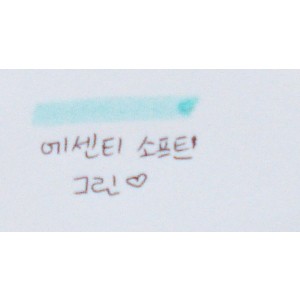 에센티 소프트
그린♡